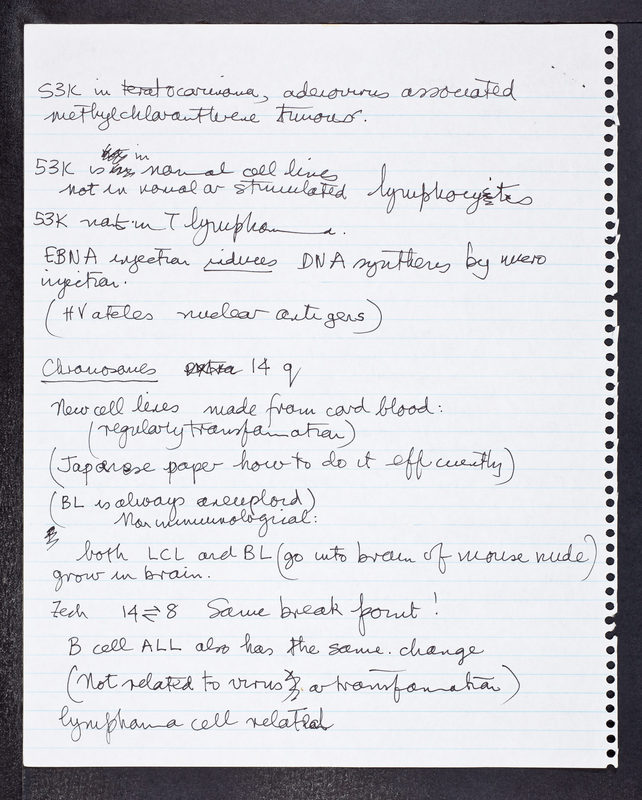 53K in teratocarcinoma, adenovirus associated
methylcholanthrene tumour.
53K is in normal cell lines
not in normal or stimulated lymphocytes
53K not in T lymphoma.
EBNA injection induces DNA synthesis by micro
injection.
(HV ateles nuclear antigens)
Chromosomes extra 14 q
New cell lines made from cord blood:
(regularly transformation)
(Japanese paper how to do it efficiently)
(BL is always aneuploid)
Non immunological:
both LCL and BL (go into brain of mouse nude)
grow in brain.
Zech 14⇄8 Same break point!
B cell ALL also has the same change
(Not related to virus or transformation)
lymphoma cell related